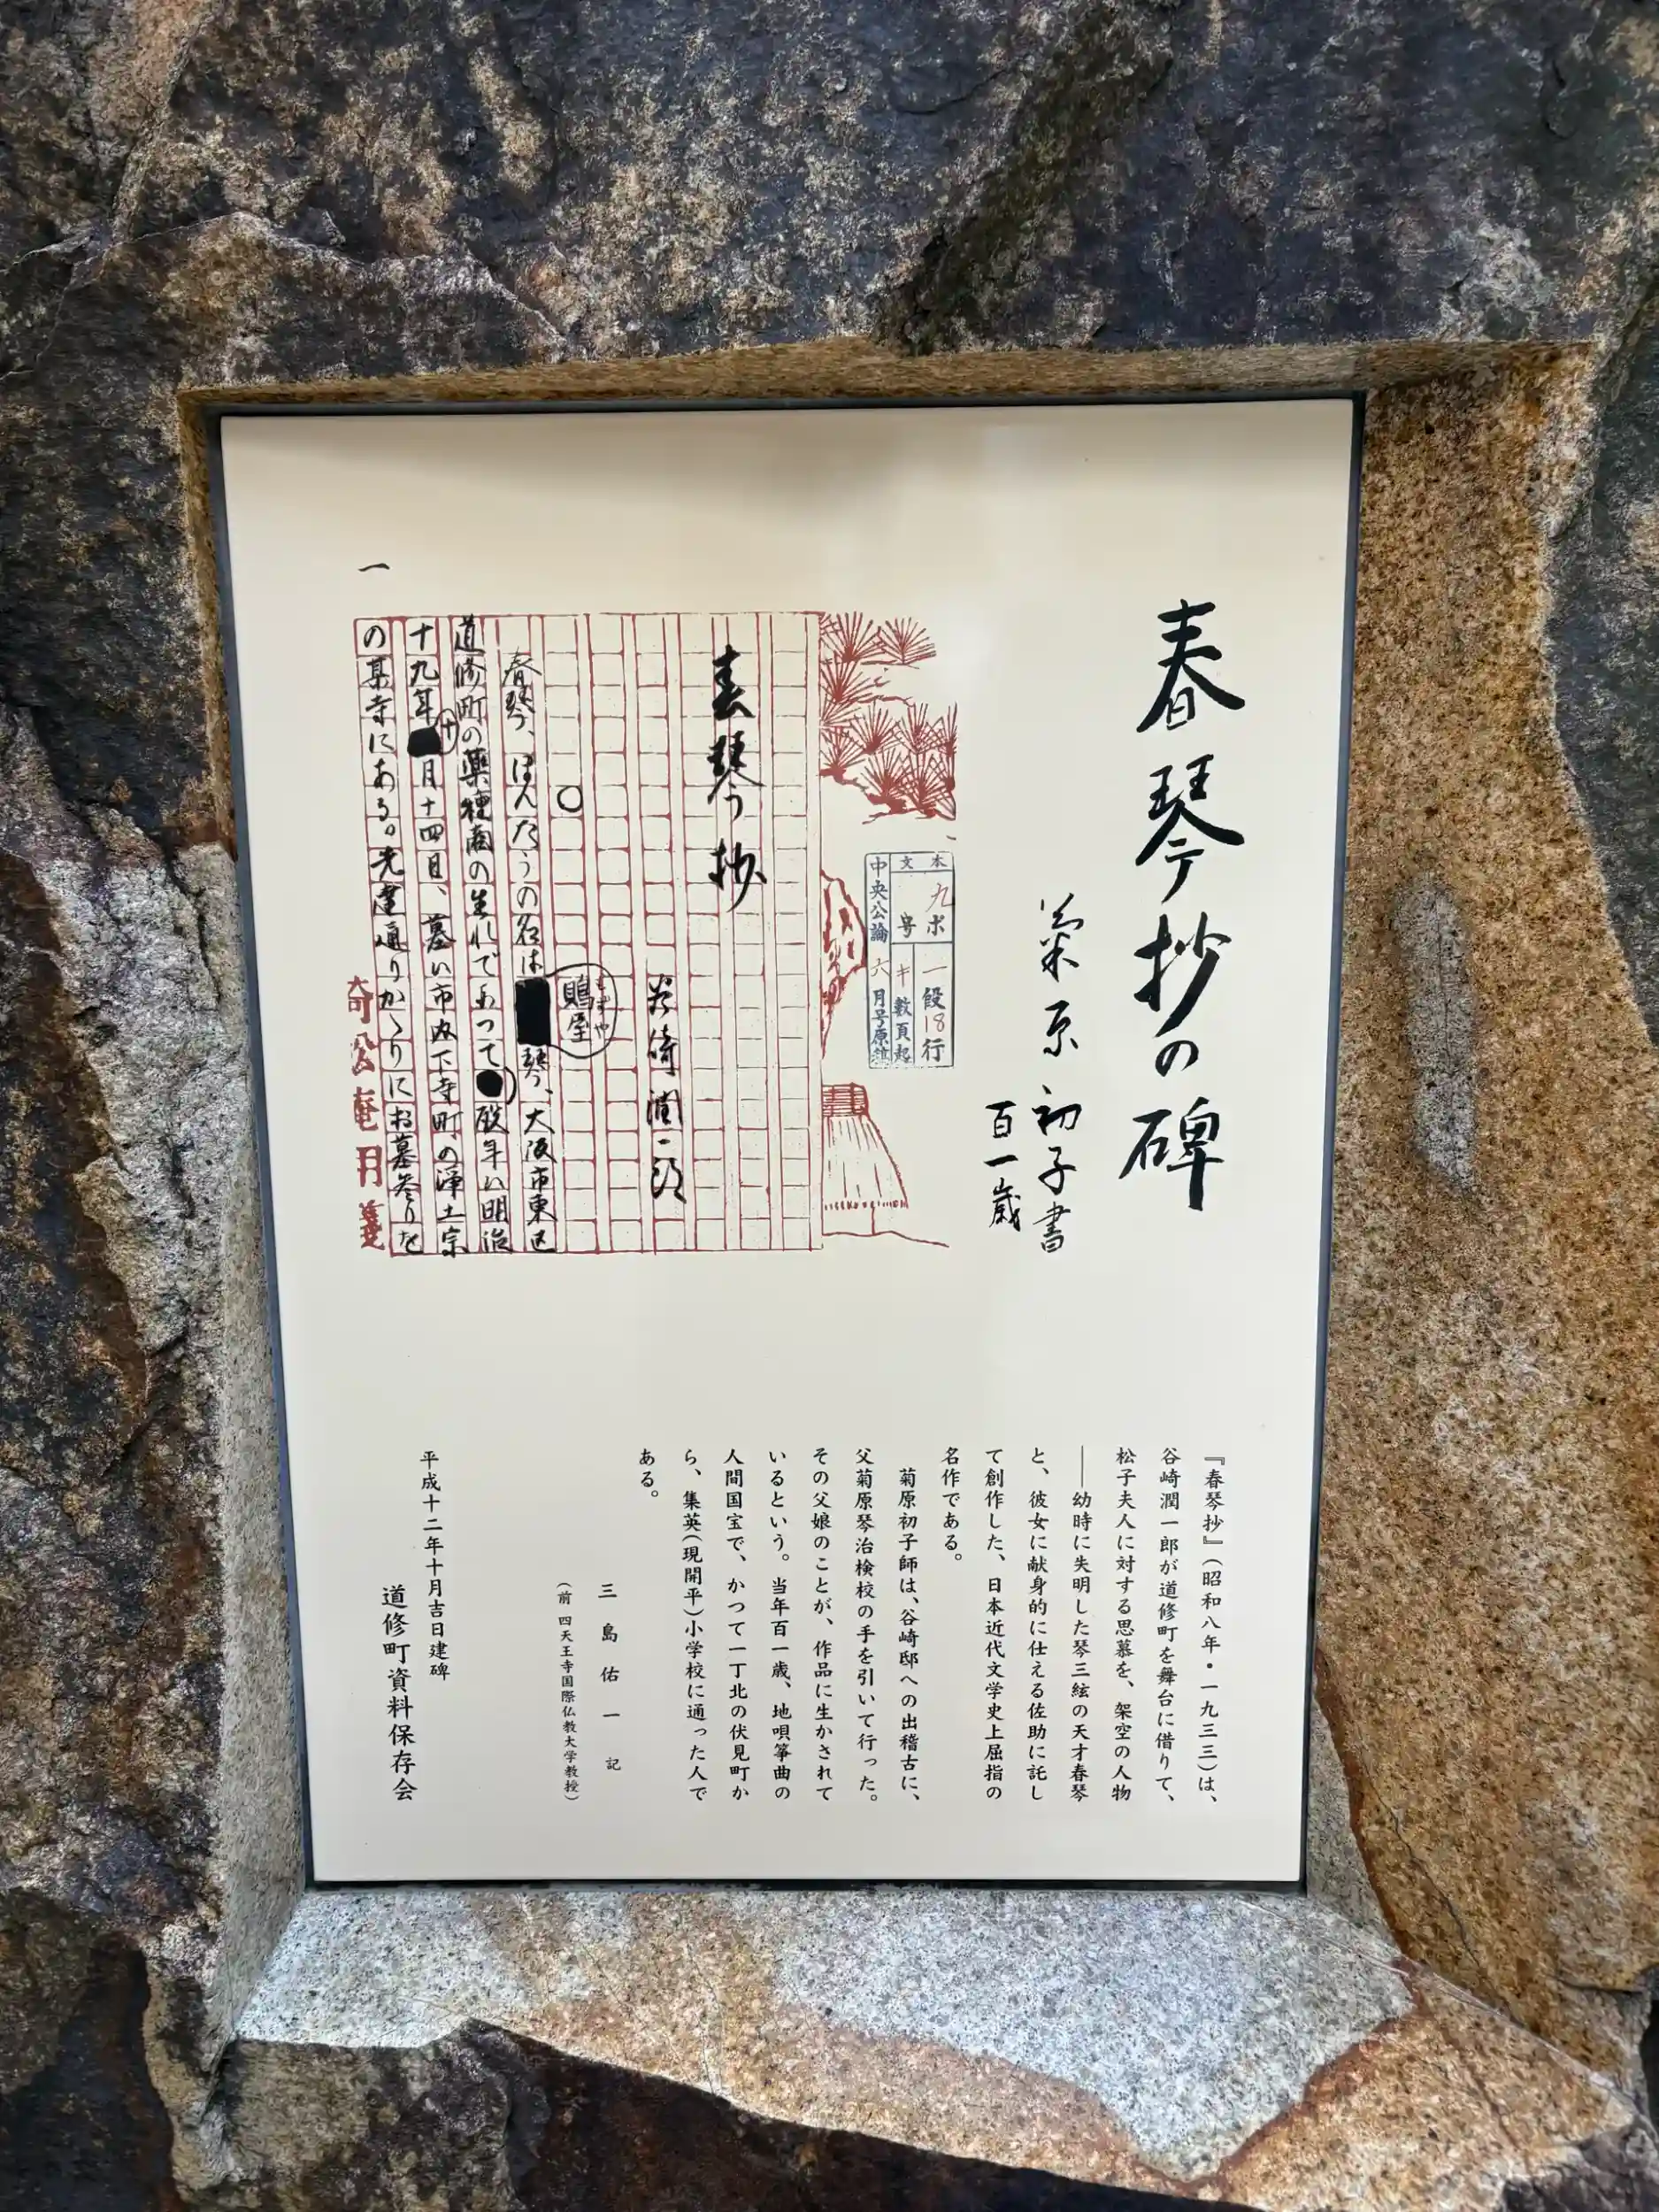 春琴抄の碑
菊原初子書
百一歳
本文 九ポ 一段18行
号 キ 数頁起
中央公論 六月号原稿
春琴抄
谷崎潤一郎
○
もずや
鵙屋
春琴、ほんたうの名は琴、大阪市東区
道修町の薬種商の生れであつて歿年は明治
十九年十月十四日、墓は市内下寺町の浄土宗
の某寺にある。先達通りかゝりにお墓参りを
一
『春琴抄』(昭和八年・一九三三)は、
谷崎潤一郎が道修町を舞台に借りて、
松子夫人に対する思慕を、架空の人物
――幼時に失明した琴三絃の天才春琴
と、彼女に献身的に仕える佐助に託し
て創作した、日本近代文学史上屈指の
名作である。
菊原初子師は、谷崎邸への出稽古に、
父菊原琴治検校の手を引いて行った。
その父娘のことが、作品に生かされて
いるという。当年百一歳、地唄箏曲の
人間国宝で、かつて一丁北の伏見町か
ら、集英(現開平)小学校に通った人で
ある。
三島佑一 記
(前 四天王寺国際仏教大学教授)
平成十二年十月吉日建碑
道修町資料保存会